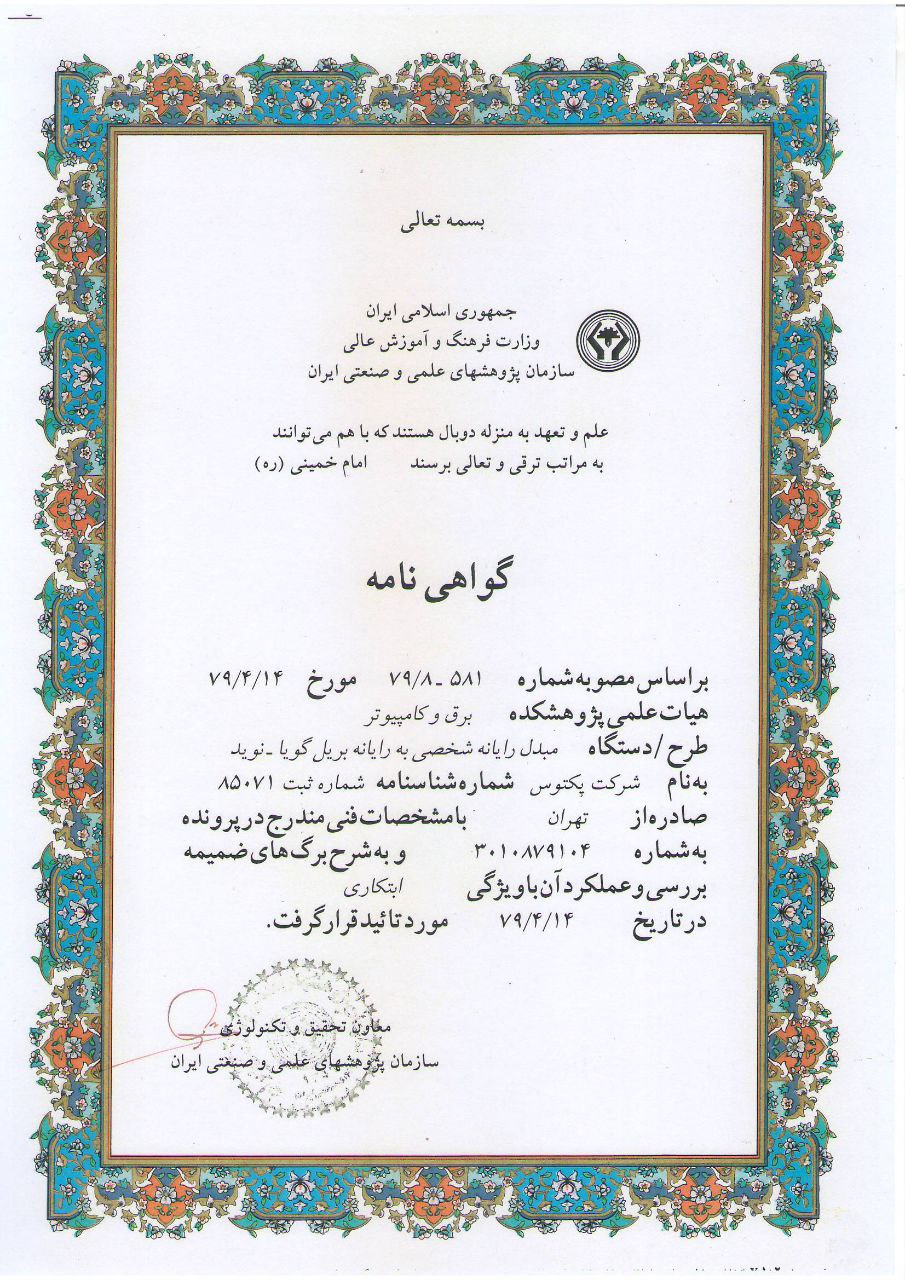 بسمه تعالی
جمهوری اسلامی ایران
وزارت فرهنگ و آموزش عالی
سازمان پژوهشهای علمی و صنعتی ایران
علم و تعهد به منزله دوبال هستند که با هم می‌توانند
به مراتب ترقی و تعالی برسند امام خمینی (ره)
گواهی نامه
براساس مصوبه شماره ۵۸۱ - ۷۹/۸ مورخ ۷۹/۴/۱۴
هیات علمی پژوهشکده برق و کامپیوتر
طرح / دستگاه مبدل رایانه شخصی به رایانه بریل گویا - نوید
به نام شرکت پکتوس شماره شناسنامه شماره ثبت ۸۵۰۷۱
صادره از تهران با مشخصات فنی مندرج در پرونده
به شماره ۳۰۱۰۸۷۹۱۰۴ و به شرح برگ‌های ضمیمه
بررسی و عملکرد آن با ویژگی ابتکاری
در تاریخ ۷۹/۴/۱۴ مورد تائید قرار گرفت.
معاون تحقیق و تکنولوژی
سازمان پژوهشهای علمی و صنعتی ایران